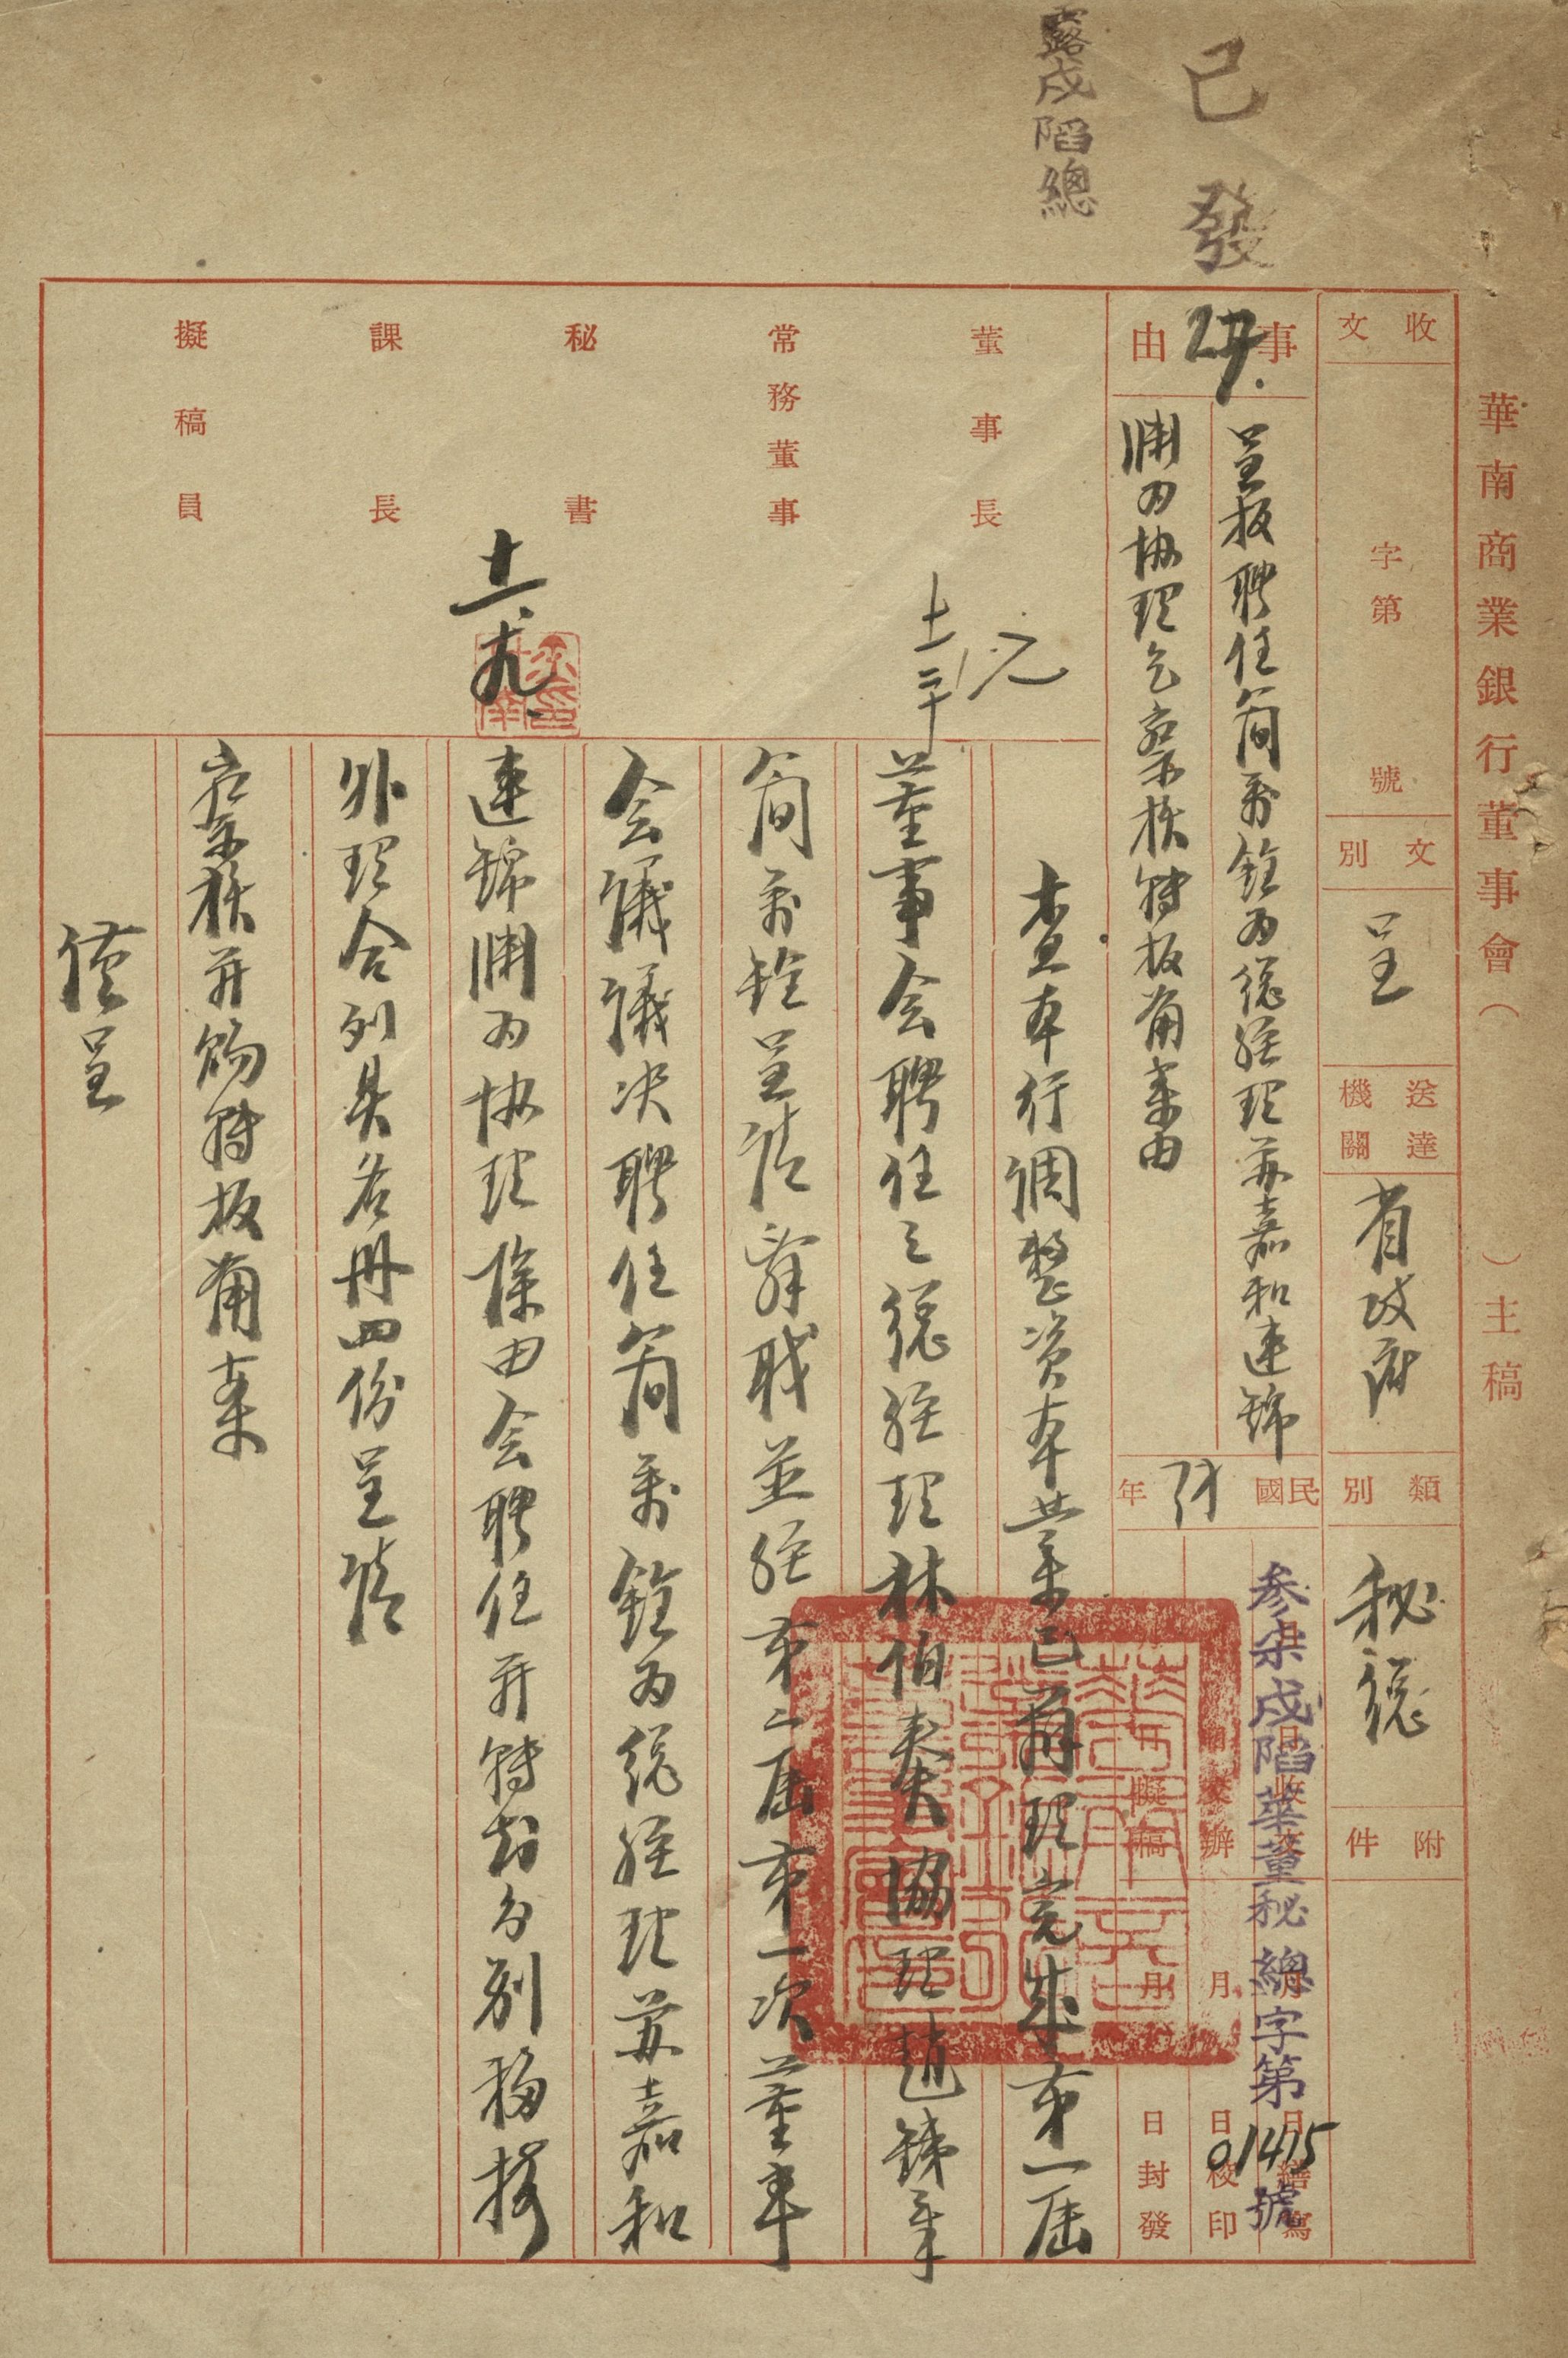 已發
露戍陷總
華南商業銀行董事會（　）主稿
收文
字第　號
文別
呈
送達機關
省政府
類別
秘總
附件
事由
呈报聘任簡萬銓為總經理蘇嘉和連錦
渊为協理乞察核轉报備案由
民國　年
参柒戍陷華董秘總字第01415號
月　日繕寫
月　日校印
月　日封發
擬稿
董事長
常務董事
秘書
課長
擬稿員
十一、廿
十一、九
查本行調整資本業已辦理完成第一屆
董事会聘任之總經理林伯奏協理趙銕
簡萬銓呈請辭職並經第二屆第一次董事
会議議决聘任簡萬銓為總經理蘇嘉和
連錦渊为協理除由会聘任并轉知分別接
外理合列具名冊四份呈請
察核并賜轉报備案
謹呈